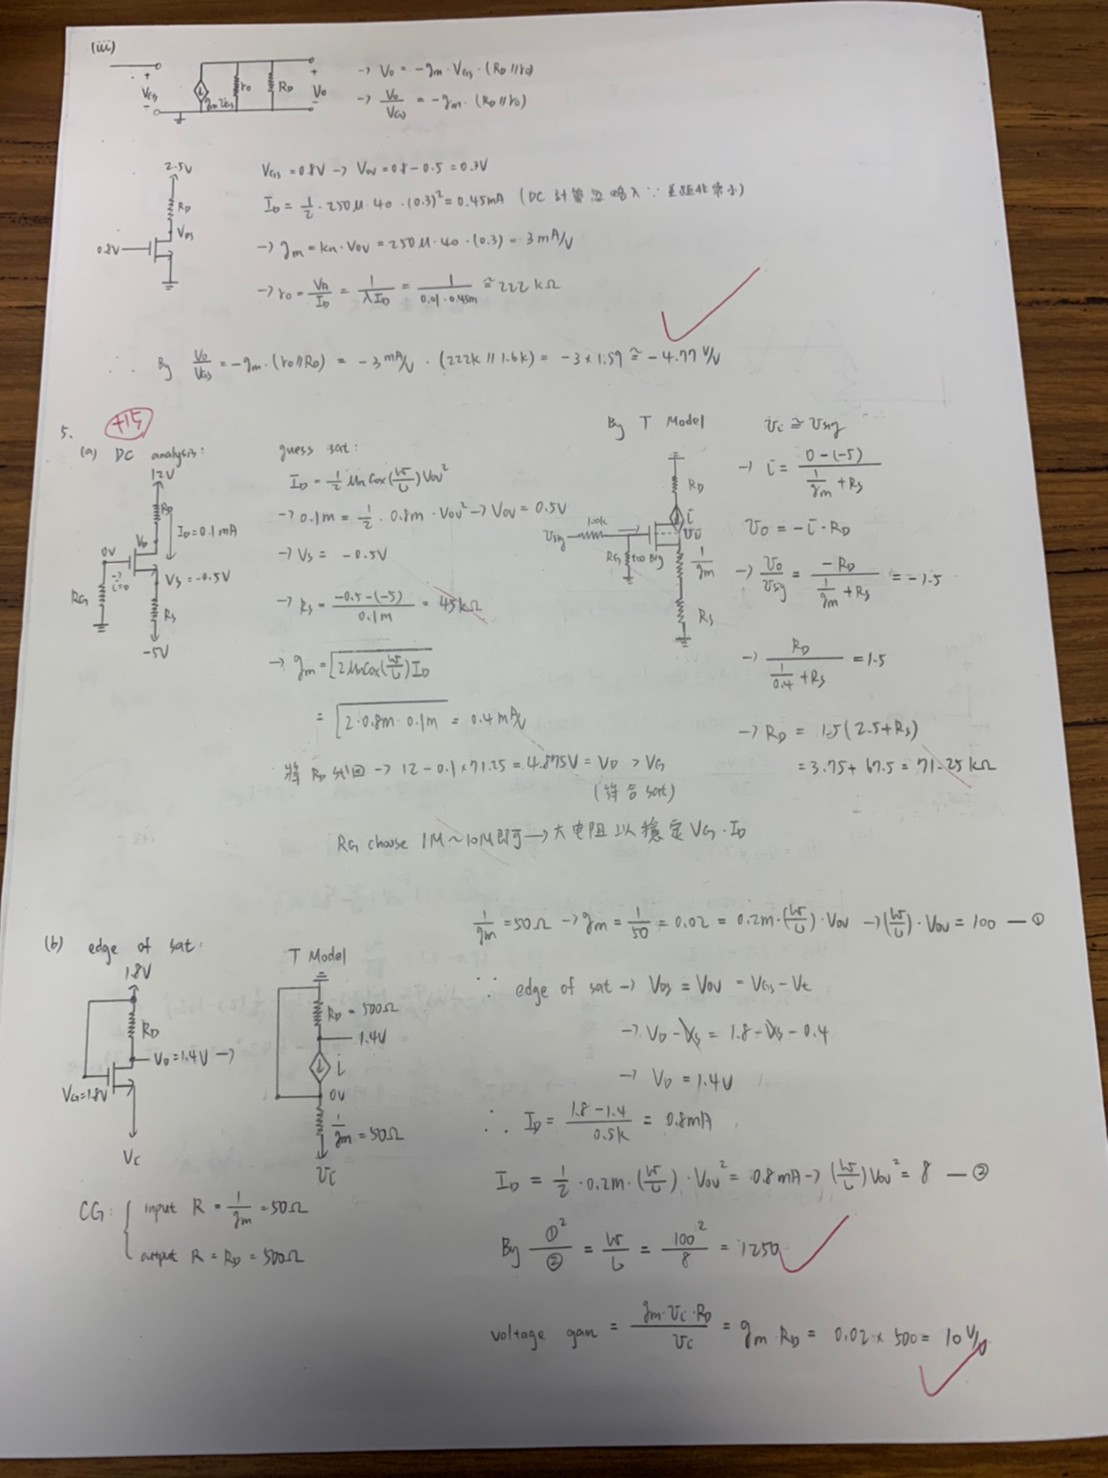 (iii)
→ Vo = -gm · VGS · (RD // ro)
→ Vo/VGS = -gm · (RD // ro)
+ VGS -
gm VGS
ro
RD
+ Vo -
2.5V
RD
VDS
0.8V
VGS = 0.8V → VOV = 0.8 - 0.5 = 0.3V
ID = 1/2 · 250μ · 40 · (0.3)² = 0.45mA (DC 計算忽略 λ ∵ 差距非常小)
→ gm = kn · VOV = 250μ · 40 · (0.3) = 3 mA/V
→ ro = VA/ID = 1/λID = 1/(0.01 · 0.45m) ≅ 222 kΩ
∴ By Vo/VGS = -gm · (ro // RD) = -3 mA/V · (222k // 1.6k) = -3 × 1.59 ≅ -4.77 V/V
+15
5.
(a) DC analysis:
12V
RD
ID = 0.1mA
VD
0V
→ i=0
VS = -0.5V
RG
RS
-5V
guess sat:
ID = 1/2 μnCox(W/L)VOV²
→ 0.1m = 1/2 · 0.8m · VOV² → VOV = 0.5V
→ VS = -0.5V
→ RS = (-0.5-(-5))/0.1m = 45kΩ
→ gm = √(2μnCox(W/L)ID)
= √(2 · 0.8m · 0.1m) = 0.4 mA/V
將 RD 代回 → 12 - 0.1×71.25 = 4.875V = VD > VG
(符合 sat)
RG choose 1M~10M即可 → 大電阻以穩定 VG · ID
By T Model
RD
i
vo
vsig
100k
RG
too Big
1/gm
RS
vi ≅ vsig
→ i = (0-(-5))/(1/gm + RS)
vo = -i · RD
→ vo/vsig = -RD/(1/gm + RS) = -1.5
→ RD/(1/0.4 + RS) = 1.5
→ RD = 1.5(2.5+RS)
= 3.75 + 67.5 = 71.25 kΩ
(b) edge of sat:
1.8V
RD
VD = 1.4V →
VG=1.8V
VC
T Model
RD = 500Ω
1.4V
i
0V
1/gm = 50Ω
vc
CG: { input R = 1/gm = 50Ω
output R = RD = 500Ω
1/gm = 50Ω → gm = 1/50 = 0.02 = 0.2m·(W/L)·VOV → (W/L)·VOV = 100 — ①
∵ edge of sat → VDS = VOV = VGS - Vt
→ VD - VS = 1.8 - VS - 0.4
→ VD = 1.4V
∴ ID = (1.8-1.4)/0.5k = 0.8mA
ID = 1/2 · 0.2m · (W/L) · VOV² = 0.8mA → (W/L)VOV² = 8 — ②
By ①²/② = W/L = 100²/8 = 1250
voltage gan = gm·vc·RD/vc = gm·RD = 0.02 × 500 = 10 V/V